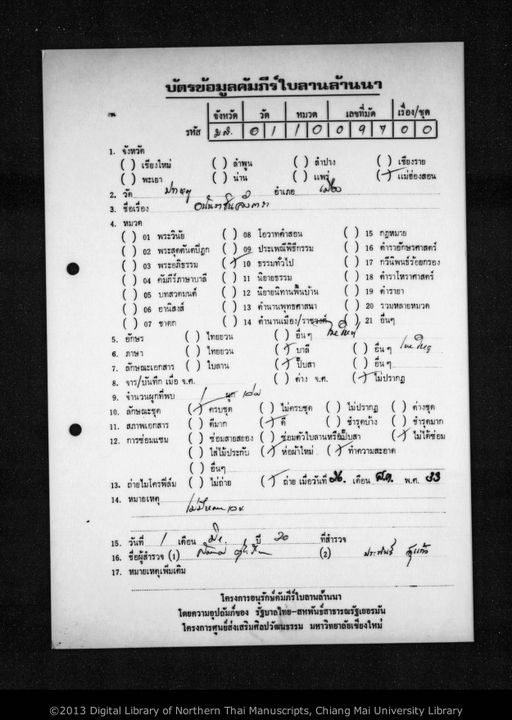 บัตรข้อมูลคัมภีร์ใบลานล้านนา
จังหวัด วัด หมวด เลขที่มัด เรื่อง/ชุด
รหัส ม.ส. 0 1 1 0 0 9 7 0 0
1. จังหวัด
( ) เชียงใหม่ ( ) ลำพูน ( ) ลำปาง ( ) เชียงราย
( ) พะเยา ( ) น่าน ( ) แพร่ (/) แม่ฮ่องสอน
2. วัด อำเภอ เมือง
3. ชื่อเรื่อง
4. หมวด
( ) 01 พระวินัย ( ) 08 โอวาทคำสอน ( ) 15 กฎหมาย
( ) 02 พระสุตตันตปิฎก ( ) 09 ประเพณีพิธีกรรม ( ) 16 ตำราโยกศาสตร์
( ) 03 พระอภิธรรม (/) 10 ธรรมทั่วไป ( ) 17 กวีนิพนธ์ร้อยกรอง
( ) 04 คัมภีร์ภาษาบาลี ( ) 11 นิยายธรรม ( ) 18 ตำราโหราศาสตร์
( ) 05 บทสวดมนต์ ( ) 12 นิยายนิทานพื้นบ้าน ( ) 19 ตำรายา
( ) 06 อานิสงส์ ( ) 13 ตำนานพุทธศาสนา ( ) 20 รวมหลายหมวด
( ) 07 ชาดก ( ) 14 ตำนานเมือง/ราชวงศ์ ( ) 21 อื่นๆ
5. อักษร ( ) ไทยยวน (/) อื่นๆ ไทใหญ่
6. ภาษา ( ) ไทยยวน (/) บาลี ( ) อื่นๆ ไทใหญ่
7. ลักษณะเอกสาร ( ) ใบลาน (/) ปั๊บสา ( ) อื่นๆ
8. จาร/บันทึก เมื่อ จ.ศ. ( ) ต่าง จ.ศ. (/) ไม่ปรากฏ
9. จำนวนผูกที่พบ 1 ผูก
10. ลักษณะชุด (/) ครบชุด ( ) ไม่ครบชุด ( ) ไม่ปรากฏ ( ) ต่างชุด
11. สภาพเอกสาร ( ) ดีมาก (/) ดี ( ) ชำรุดบ้าง ( ) ชำรุดมาก
12. การซ่อมแซม ( ) ซ่อมสายสยอง ( ) ซ่อมตัวใบลานหรือปั๊บสา (/) ไม่ได้ซ่อม
( ) ใส่ไม้ประกับ (/) ห่อผ้าใหม่ (/) ทำความสะอาด
( ) อื่นๆ
13. ถ่ายไมโครฟิล์ม ( ) ไม่ถ่าย (/) ถ่าย เมื่อวันที่ 26. เดือน ส.ค. พ.ศ. 33
14. หมายเหตุ
15. วันที่ 1 เดือน มิ.ย. ปี 30 ที่สำรวจ
16. ชื่อผู้สำรวจ (1) (2) ประพันธ์
17. หมายเหตุเพิ่มเติม
โครงการอนุรักษ์คัมภีร์ใบลานล้านนา
โดยความอุปถัมภ์ของ รัฐบาลไทย-สหพันธ์สาธารณรัฐเยอรมัน
โครงการศูนย์ส่งเสริมศิลปวัฒนธรรม มหาวิทยาลัยเชียงใหม่
©2013 Digital Library of Northern Thai Manuscripts, Chiang Mai University Library